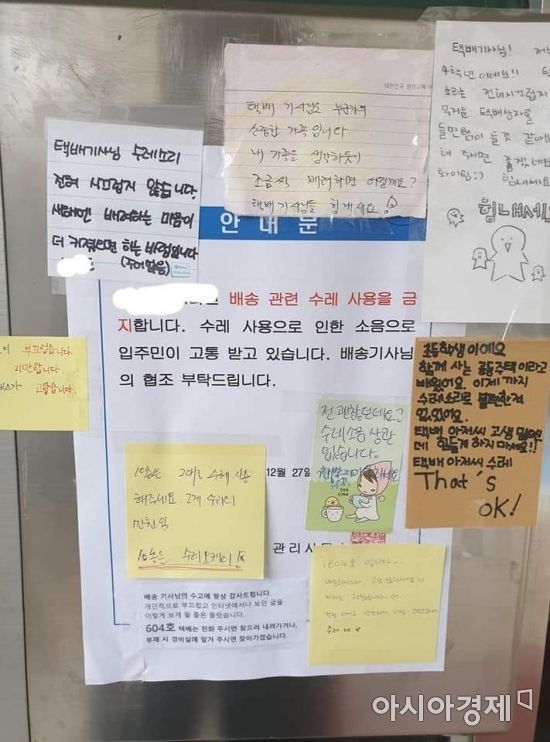 택배기사님 수레소리
전혀 시끄럽지 않습니다.
새해엔 배려하는 마음이
더 커졌으면 하는 바램입니다
(주어없음)
택배 기사님도 누군가의
소중한 가족입니다
내 가족을 생각하듯이
조금씩 배려하면 어떨까요?
택배기사님들 힘내세요!
택배기사님! 저는
4학년이에요!!
소리는 전혀시끄럽지
무거운 택배상자를
들면 힘이 들것 같아요
해 주시면 좋겠네요
화이팅:) 힘내세요
힘내세요
안 내 문
배송 관련 수레 사용을 금
지합니다. 수레 사용으로 인한 소음으로
입주민이 고통 받고 있습니다. 배송기사님
의 협조 부탁드립니다.
12월 27일
관리사무
부끄럽습니다.
미안합니다.
고맙습니다.
전 괜찮던데요?
수레소음 상관
없습니다.
초등학생이에요
함께 사는 공동주택이라고
배웠어요. 이제까지
수레소리로 불편한적
없었어요.
택배 아저씨 고생 많으신
데 힘들게 하지 마세요!!
택배 아저씨 수레
That's
OK!
그대로 수레 사용
해주세요 2개 수레이
만원임
수레 오케이
배송 기사님의 수고에 항상 감사드립니다.
개인적으로 부끄럽고 인터넷에서나 보던 글을
이렇게 보게 될 줄은 몰랐습니다.
604호 택배는 전화 주시면 찾으러 내려가거나,
부재 시 경비실에 맡겨 주시면 찾아가겠습니다.
1804호 입니다
수레 ok
아시아경제